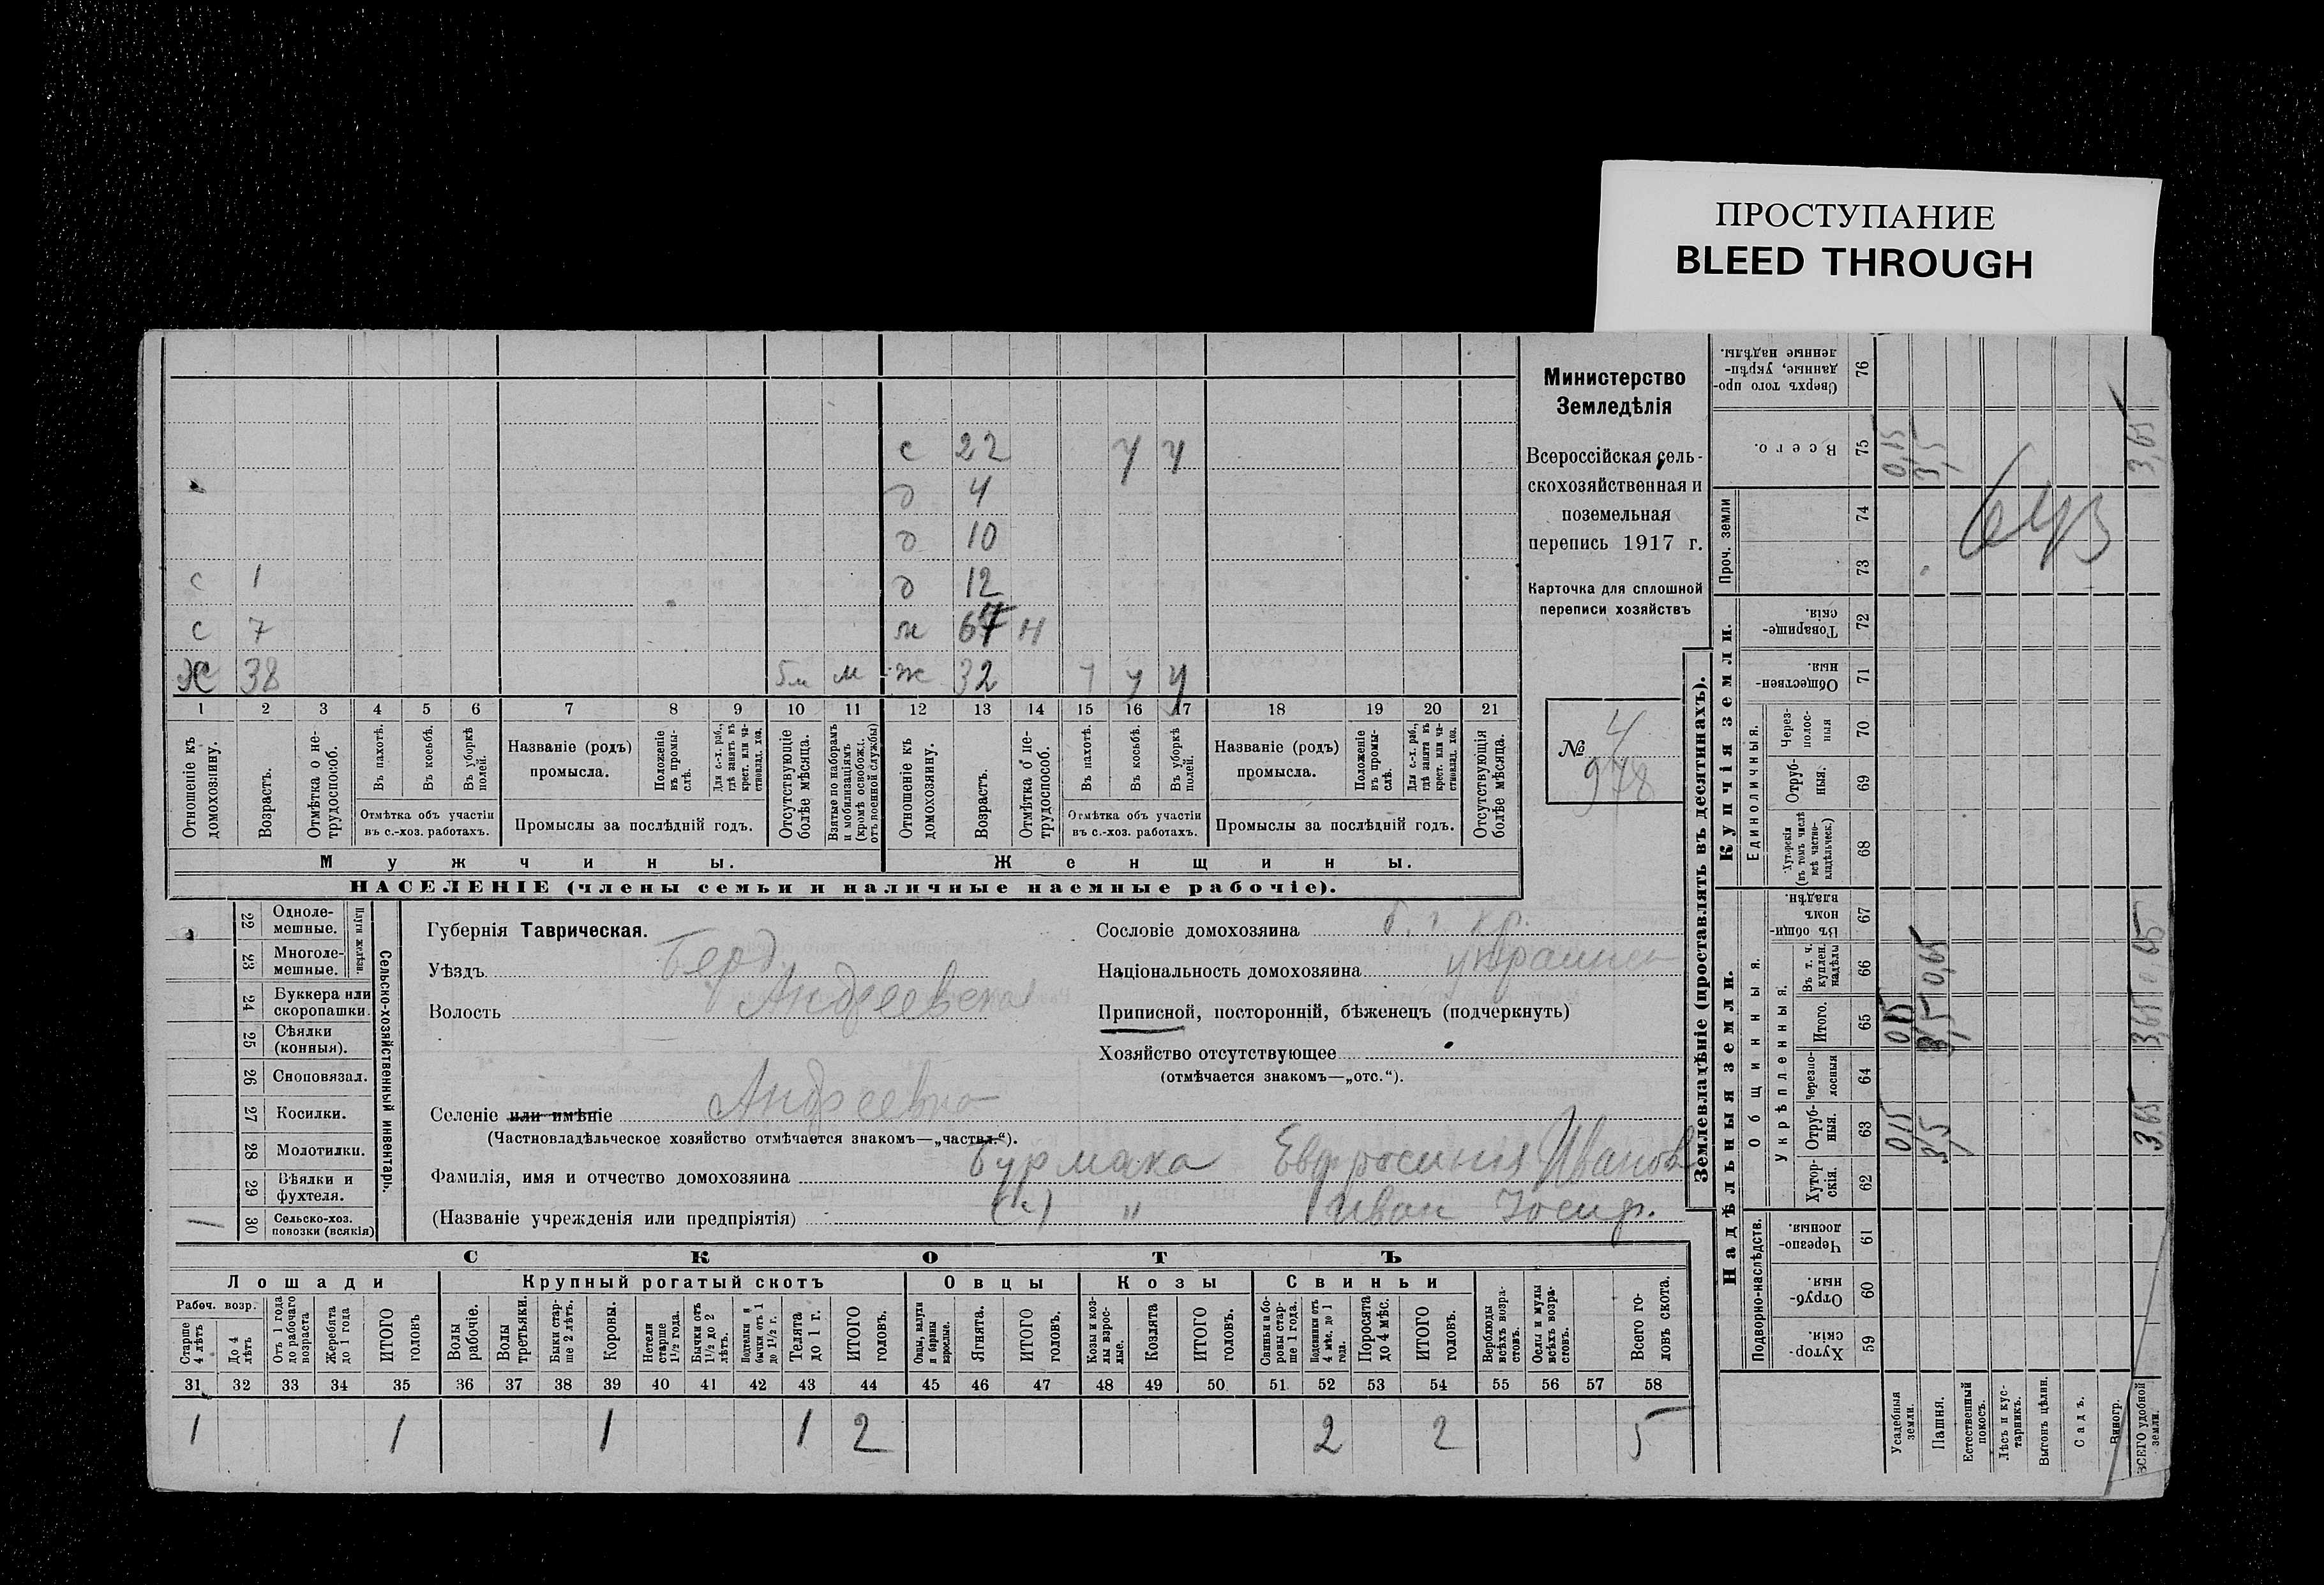 ПРОСТУПАНИЕ
BLEED THROUGH
с 22 у у
д 4
д 10
с 1 д 12
с 7 м 67 Н
Х 38 м ж 32 у у у
1 2 3 4 5 6 7 8 9 10 11 12 13 14 15 16 17 18 19 20 21
Отношеніе къ домохозяину.
Возрастъ.
Отмѣтка о не-трудоспособ.
Въ пахотѣ.
Въ косьбѣ.
Въ уборкѣ полей.
Отмѣтка объ участіи въ с.-хоз. работахъ.
Названіе (родъ) промысла.
Положеніе въ промы-слѣ.
Для с.-х. раб., гдѣ занятъ въ крест. или ча-стновлад. хоз.
Промыслы за послѣдній годъ.
Отсутствующіе болѣе мѣсяца.
Взятые по наборамъ и мобилизаціямъ (кромѣ освобожд. отъ военной службы)
Отношеніе къ домохозяину.
Возрастъ.
Отмѣтка о не-трудоспособ.
Въ пахотѣ.
Въ косьбѣ.
Въ уборкѣ полей.
Отмѣтка объ участіи въ с.-хоз. работахъ.
Названіе (родъ) промысла.
Положеніе въ промы-слѣ.
Для с.-х. раб., гдѣ занята въ крест. или ча-стновлад. хоз.
Промыслы за послѣдній годъ.
Отсутствующія болѣе мѣсяца.
Мужчины. Женщины.
НАСЕЛЕНІЕ (члены семьи и наличные наемные рабочіе).
Министерство
Земледѣлія
Всероссійская сель-
скохозяйственная и
поземельная
перепись 1917 г.
Карточка для сплошной
переписи хозяйствъ
№ 4
978
22 Одноле-мешные.
23 Многоле-мешные.
Плуги желѣзн.
24 Буккера или скоропашки.
25 Сѣялки (конныя).
26 Сноповязал.
27 Косилки.
28 Молотилки.
29 Вѣялки и фухтеля.
1 30 Сельско-хоз. повозки (всякія)
Сельско-хозяйственный инвентарь.
Губернія Таврическая.
Уѣздъ Берд.
Волость Андреевская
Селеніе или имѣніе Андреевка
(Частновладѣльческое хозяйство отмѣчается знакомъ—„частвл.“).
Фамилія, имя и отчество домохозяина Бурмака Евфросиния Иванов
(Названіе учрежденія или предпріятія) (с) " Иван Иосиф.
Сословіе домохозяина б. г. кр.
Національность домохозяина украин
Приписной, посторонній, бѣженецъ (подчеркнуть)
Хозяйство отсутствующее
(отмѣчается знакомъ—„отс.“).
СКОТЪ
Лошади Крупный рогатый скотъ Овцы Козы Свиньи
Рабоч. возр.
Старше 4 лѣтъ
До 4 лѣтъ
Отъ 1 года до рабочаго возраста
Жеребята до 1 года
ИТОГО головъ
Волы рабочіе.
Волы третьяки.
Быки стар-ше 2 лѣтъ.
Коровы.
Нетели старше 1 1/2 года.
Бычки отъ 1 1/2 до 2 лѣтъ.
Подтелки и бычки отъ 1 до 1 1/2 г.
Телята до 1 г.
ИТОГО головъ.
Овцы, валухи и бараны взрослые.
Ягнята.
ИТОГО головъ.
Козы и коз-лы взрос-лые.
Козлята
ИТОГО головъ.
Свиньи и бо-ровы стар-ше 1 года.
Подсвинки отъ 4 мѣс. до 1 года.
Поросята до 4 мѣс.
ИТОГО головъ.
Верблюды всѣхъ возра-стовъ.
Ослы и мулы всѣхъ возра-стовъ.
Всего го-ловъ скота.
31 32 33 34 35 36 37 38 39 40 41 42 43 44 45 46 47 48 49 50 51 52 53 54 55 56 57 58
1 1 1 1 2 2 2 5
Землевладѣніе (проставлять въ десятинахъ).
Надѣльныя земли. Купчія земли. Проч. земли
Подворно-наслѣдств.
Общинныя.
Укрѣпленныя.
Единоличныя.
Хутор-скія. 59
Отруб-ныя. 60
Черезпо-лосныя. 61
Хутор-скія. 62
Отруб-ныя. 63
Черезпо-лосныя 64
Итого. 65
Въ т. ч. куплен. надѣлы 66
Въ общи-номъ владѣн. 67
Хуторскія (въ томъ числѣ всѣ частно-владѣльческ.) 68
Отруб-ныя. 69
Через-полос-ныя 70
Обществен-ныя. 71
Товарище-скія. 72
73
74
Всего. 75
Сверхъ того про-данные, укрѣп-ленные надѣлы. 76
Усадебныя земли. 0,15 0,15 0,15
Пашня. 3,5 3,5 0,65 3,5
Естественный покосъ.
Лѣсъ и кус-тарникъ.
Выгонъ цѣлин.
Садъ.
Виногр.
ВСЕГО удобной земли. 3,65 3,65 0,65 3,65